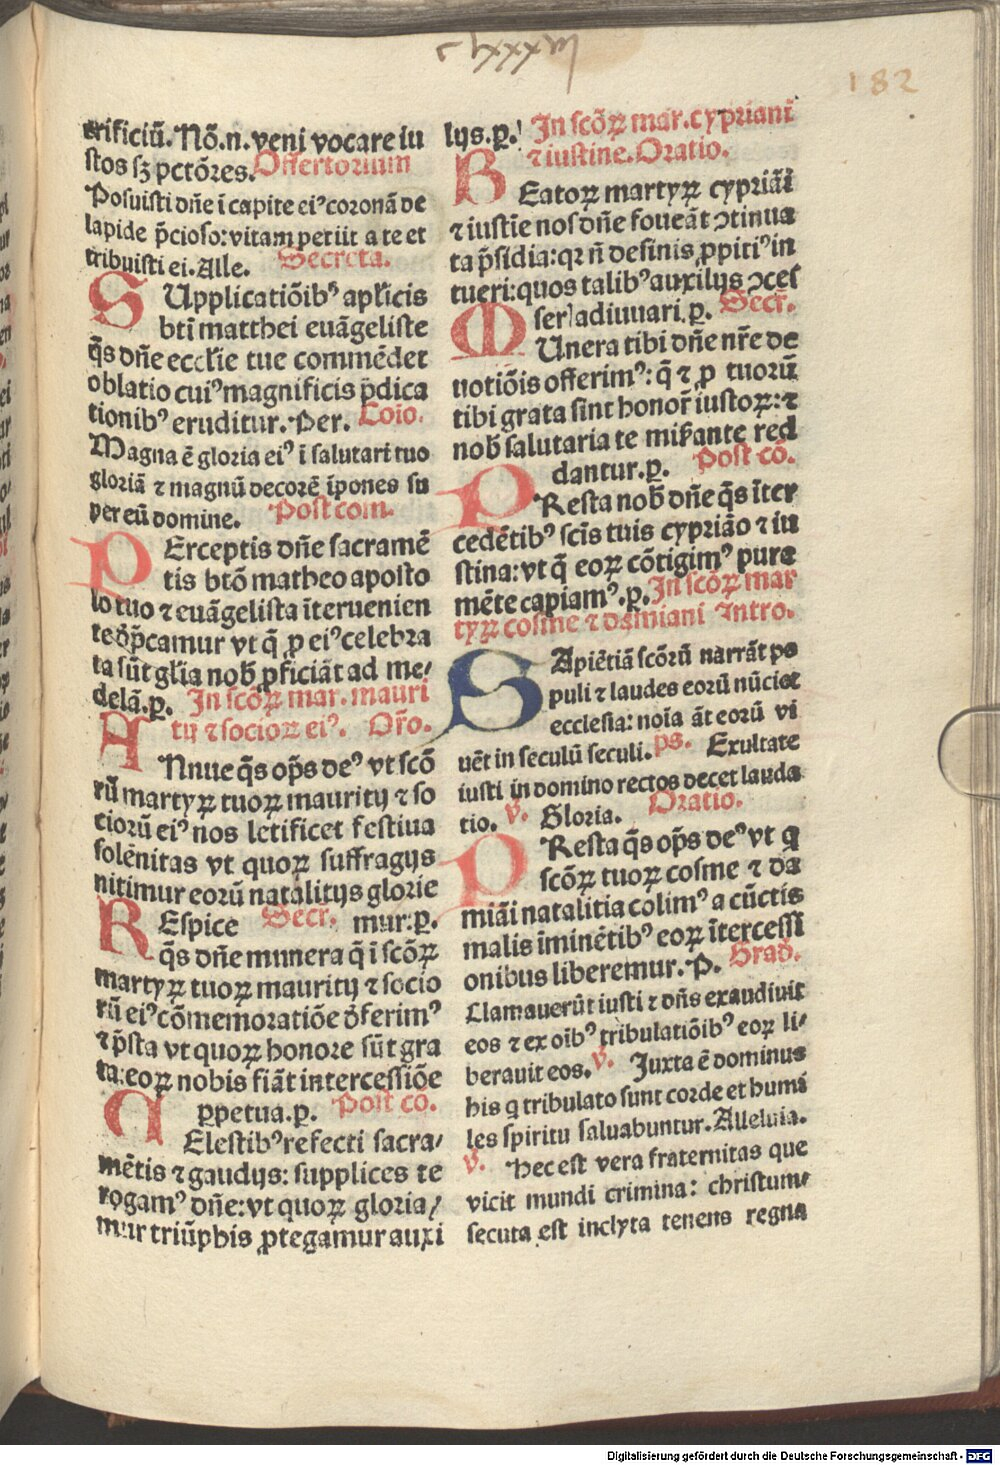 clxxxvi
182
crificiū. Nō.n. veni vocare iu
stos sꝫ pctōres. Offertorium
Posuisti dn̄e ī capite eiꝰ coronā de
lapide p̄cioso: vitam petiit a te et
tribuisti ei. Alle. Secreta.
SUpplicatiōibꝰ apl'icis
bt̄i matthei euāgeliste
q̄s dn̄e eccl'ie tue commēdet
oblatio cuiꝰ magnificis p̄dica
tionibꝰ eruditur. Per. Coio.
Magna ē gloria eiꝰ ī salutari tuo
gloriā ⁊ magnū decorē īpones su
per eū domine. Post com.
PErceptis dn̄e sacramē
tis btō matheo aposto
lo tuo ⁊ euāgelista īteruenien
te dp̄camur vt q̄ ꝓ eiꝰ celebra
ta sūt gl'ia nob̄ ꝓficiāt ad me/
delā.p. In scōꝝ mar. mauri
tij ⁊ socioꝝ eiꝰ. Or̄o.
ANnue q̄s op̄s deꝰ vt scō
rū martyꝝ tuoꝝ mauritij ⁊ so
ciorū eiꝰ nos letificet festiua
solēnitas vt quoꝝ suffragijs
nitimur eorū natalitijs glorie
REspice Secr. mur:p.
q̄s dn̄e munera q̄ ī scōꝝ
martyꝝ tuoꝝ mauritij ⁊ socio
rū eiꝰ cōmemoratiōe d̄ferimꝰ
⁊ p̄sta vt quoꝝ honore sūt gra
ta:eoꝝ nobis fiāt intercessiōe
ꝑpetua.p. Post cō.
CElestibꝰ refecti sacra/
mētis ⁊ gaudijs: supplices te
rogamꝰ dn̄e: vt quoꝝ gloria/
mur triūphis ꝓtegamur auxi
lijs.p. In scōꝝ mar. cypriani
⁊ iustine. Oratio.
BEatoꝝ martyꝝ cypriāi
⁊ iustīe nos dn̄e foueāt ↄtinua
ta p̄sidia: qꝛ n̄ desinis ꝓpitiꝰ in
tueri: quos talibꝰ auxilijs ↄces
seris adiuuari.p. Secr̄.
MUnera tibi dn̄e nr̄e de
uotiōis offerimꝰ: q̄ ⁊ ꝓ tuorū
tibi grata sint honor̄ iustoꝝ: ⁊
nob̄ salutaria te mis̄ante red
dantur.p. Post cō.
PResta nob̄ dn̄e q̄s īter
cedētibꝰ scīs tuis cypriāo ⁊ iu
stina: vt q̄ eoꝝ cōtigimꝰ pura
mēte capiamꝰ.p. In scōꝝ mar
tyꝝ cosme ⁊ damiani Intro.
SApiētiā scōrū narrāt po
puli ⁊ laudes eorū nūciet
ecclesia: noīa āt eorū vi
uēt in seculū seculi. ps. Exultate
iusti in domino rectos decet lauda
tio. v. Gloria. Oratio.
PResta q̄s op̄s deꝰ vt q
scōꝝ tuoꝝ cosme ⁊ da
miāi natalitia colimꝰ a cūctis
malis īminētibꝰ eoꝝ ītercessi
onibus liberemur. P. Grad.
Clamauerūt iusti ⁊ dn̄s exaudiuit
eos ⁊ ex oibꝰ tribulatiōibꝰ eoꝝ li/
berauit eos. v. Juxta ē dominus
his q tribulato sunt corde et humi
les spiritu saluabuntur. Alleluia.
v. Hec est vera fraternitas que
vicit mundi crimina: christum/
secuta est inclyta tenens regna
Digitalisierung gefördert durch die Deutsche Forschungsgemeinschaft - DFG